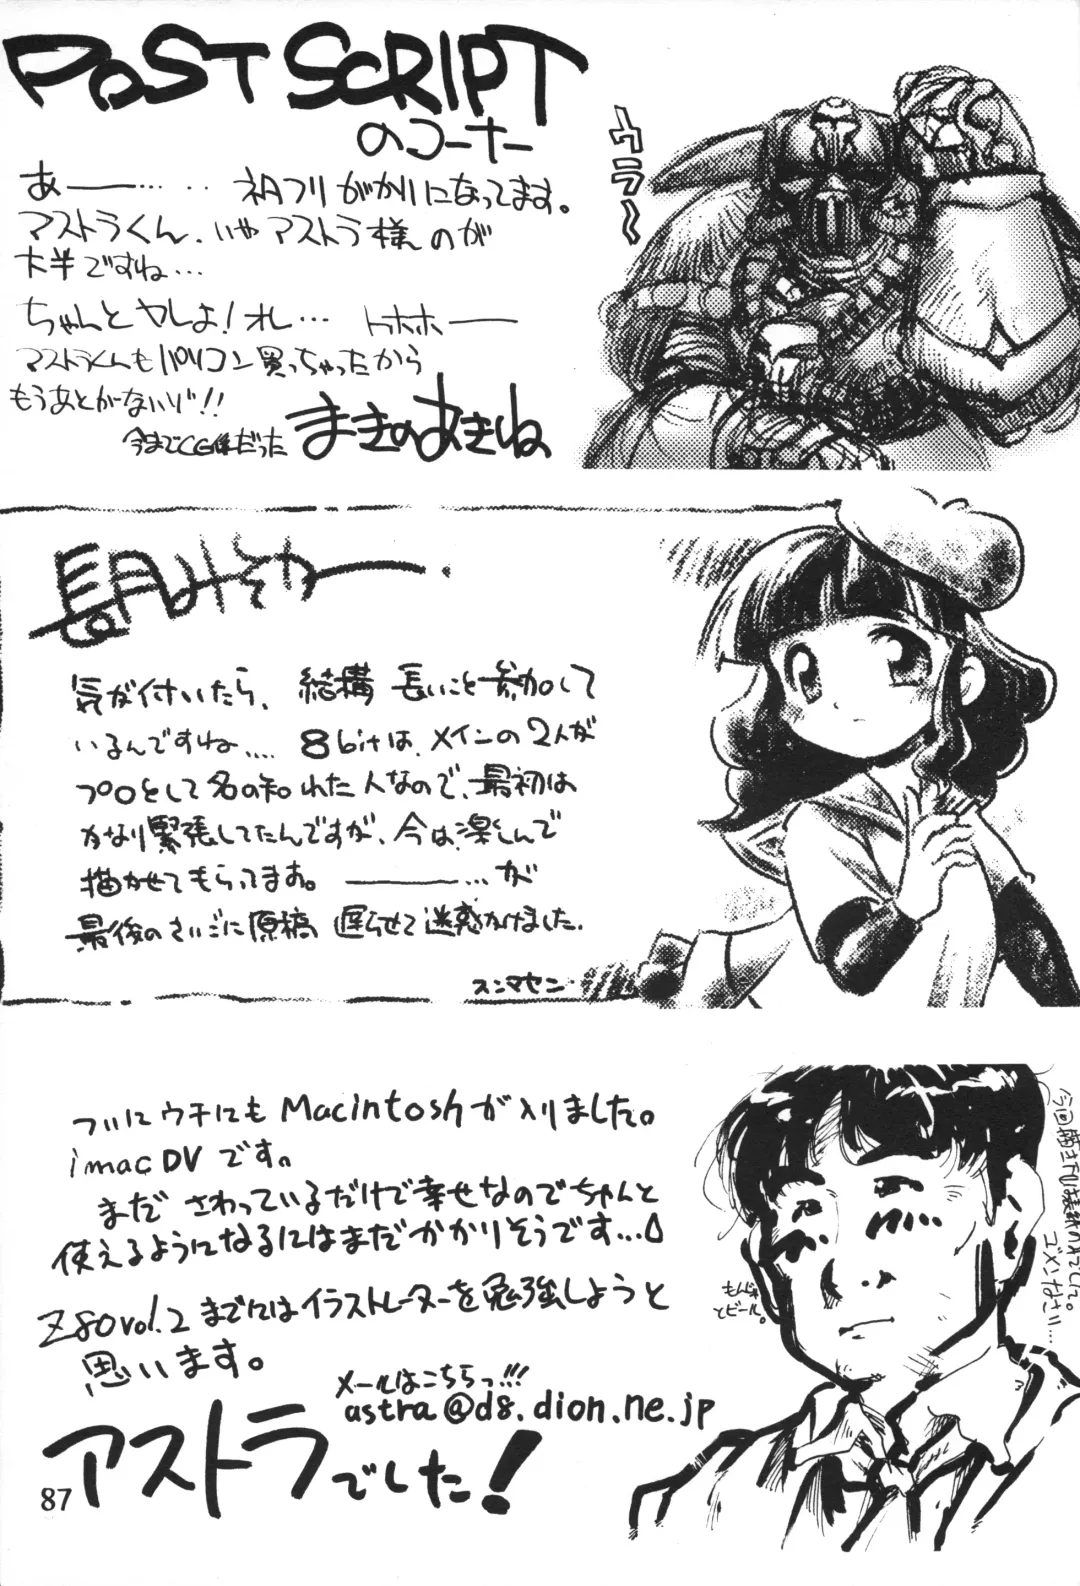 POST SCRIPT
のコーナー
あー……
ネコフリがかりになってます。
アストラくん、いやアストラ様のが
大半ですね…
ちゃんとヤレよ!オレ… トホホー
アストラくんもパソコン買っちゃったから
もうあとがないゾ!!
今までCG係だった
まきのあきね
ウラ〜
長月みそか
気が付いたら、結構長いこと参加して
いるんですね…. 8bitは、メインの2人が
プロとして名の知れた人なので、最初は
かなり緊張してたんですが、今は楽しんで
描かせてもらってます。 ――…が
最後のさいごに原稿遅らせて迷惑かけました。
スンマセン
ついにウチにもMacintoshが入りました。
imac DVです。
まださわっているだけで幸せなのでちゃんと
使えるようになるにはまだかかりそうです…
Z80vol.2までにはイラストレーターを勉強しようと
思います。
メールはこちらっ!!!
astra@d8.dion.ne.jp
アストラでした!
もんじゃ
とビール。
ゴメンなさい…
87